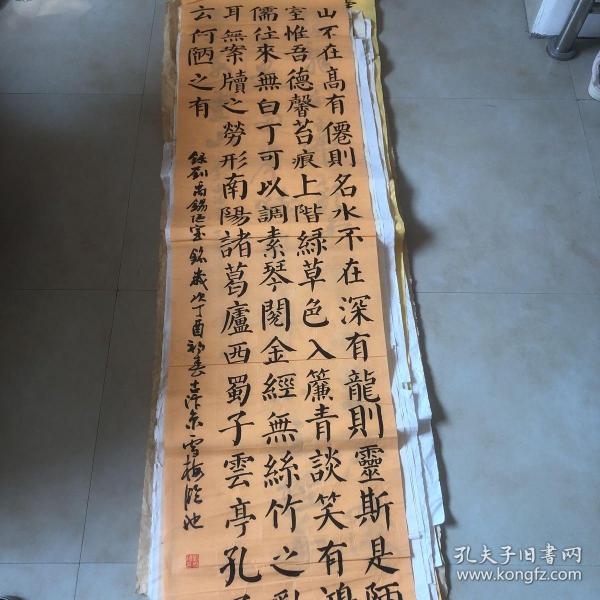 山不在高有僊則名水不在深有龍則靈斯是陋
室惟吾德馨苔痕上階綠草色入簾青談笑有鴻
儒往來無白丁可以調素琴閱金經無絲竹之亂
耳無案牘之勞形南陽諸葛廬西蜀子雲亭孔子
云何陋之有
錄劉禹錫陋室銘歲次丁酉初春古沛朱雪梅臨池
孔夫子旧书网
www.kongfz.com